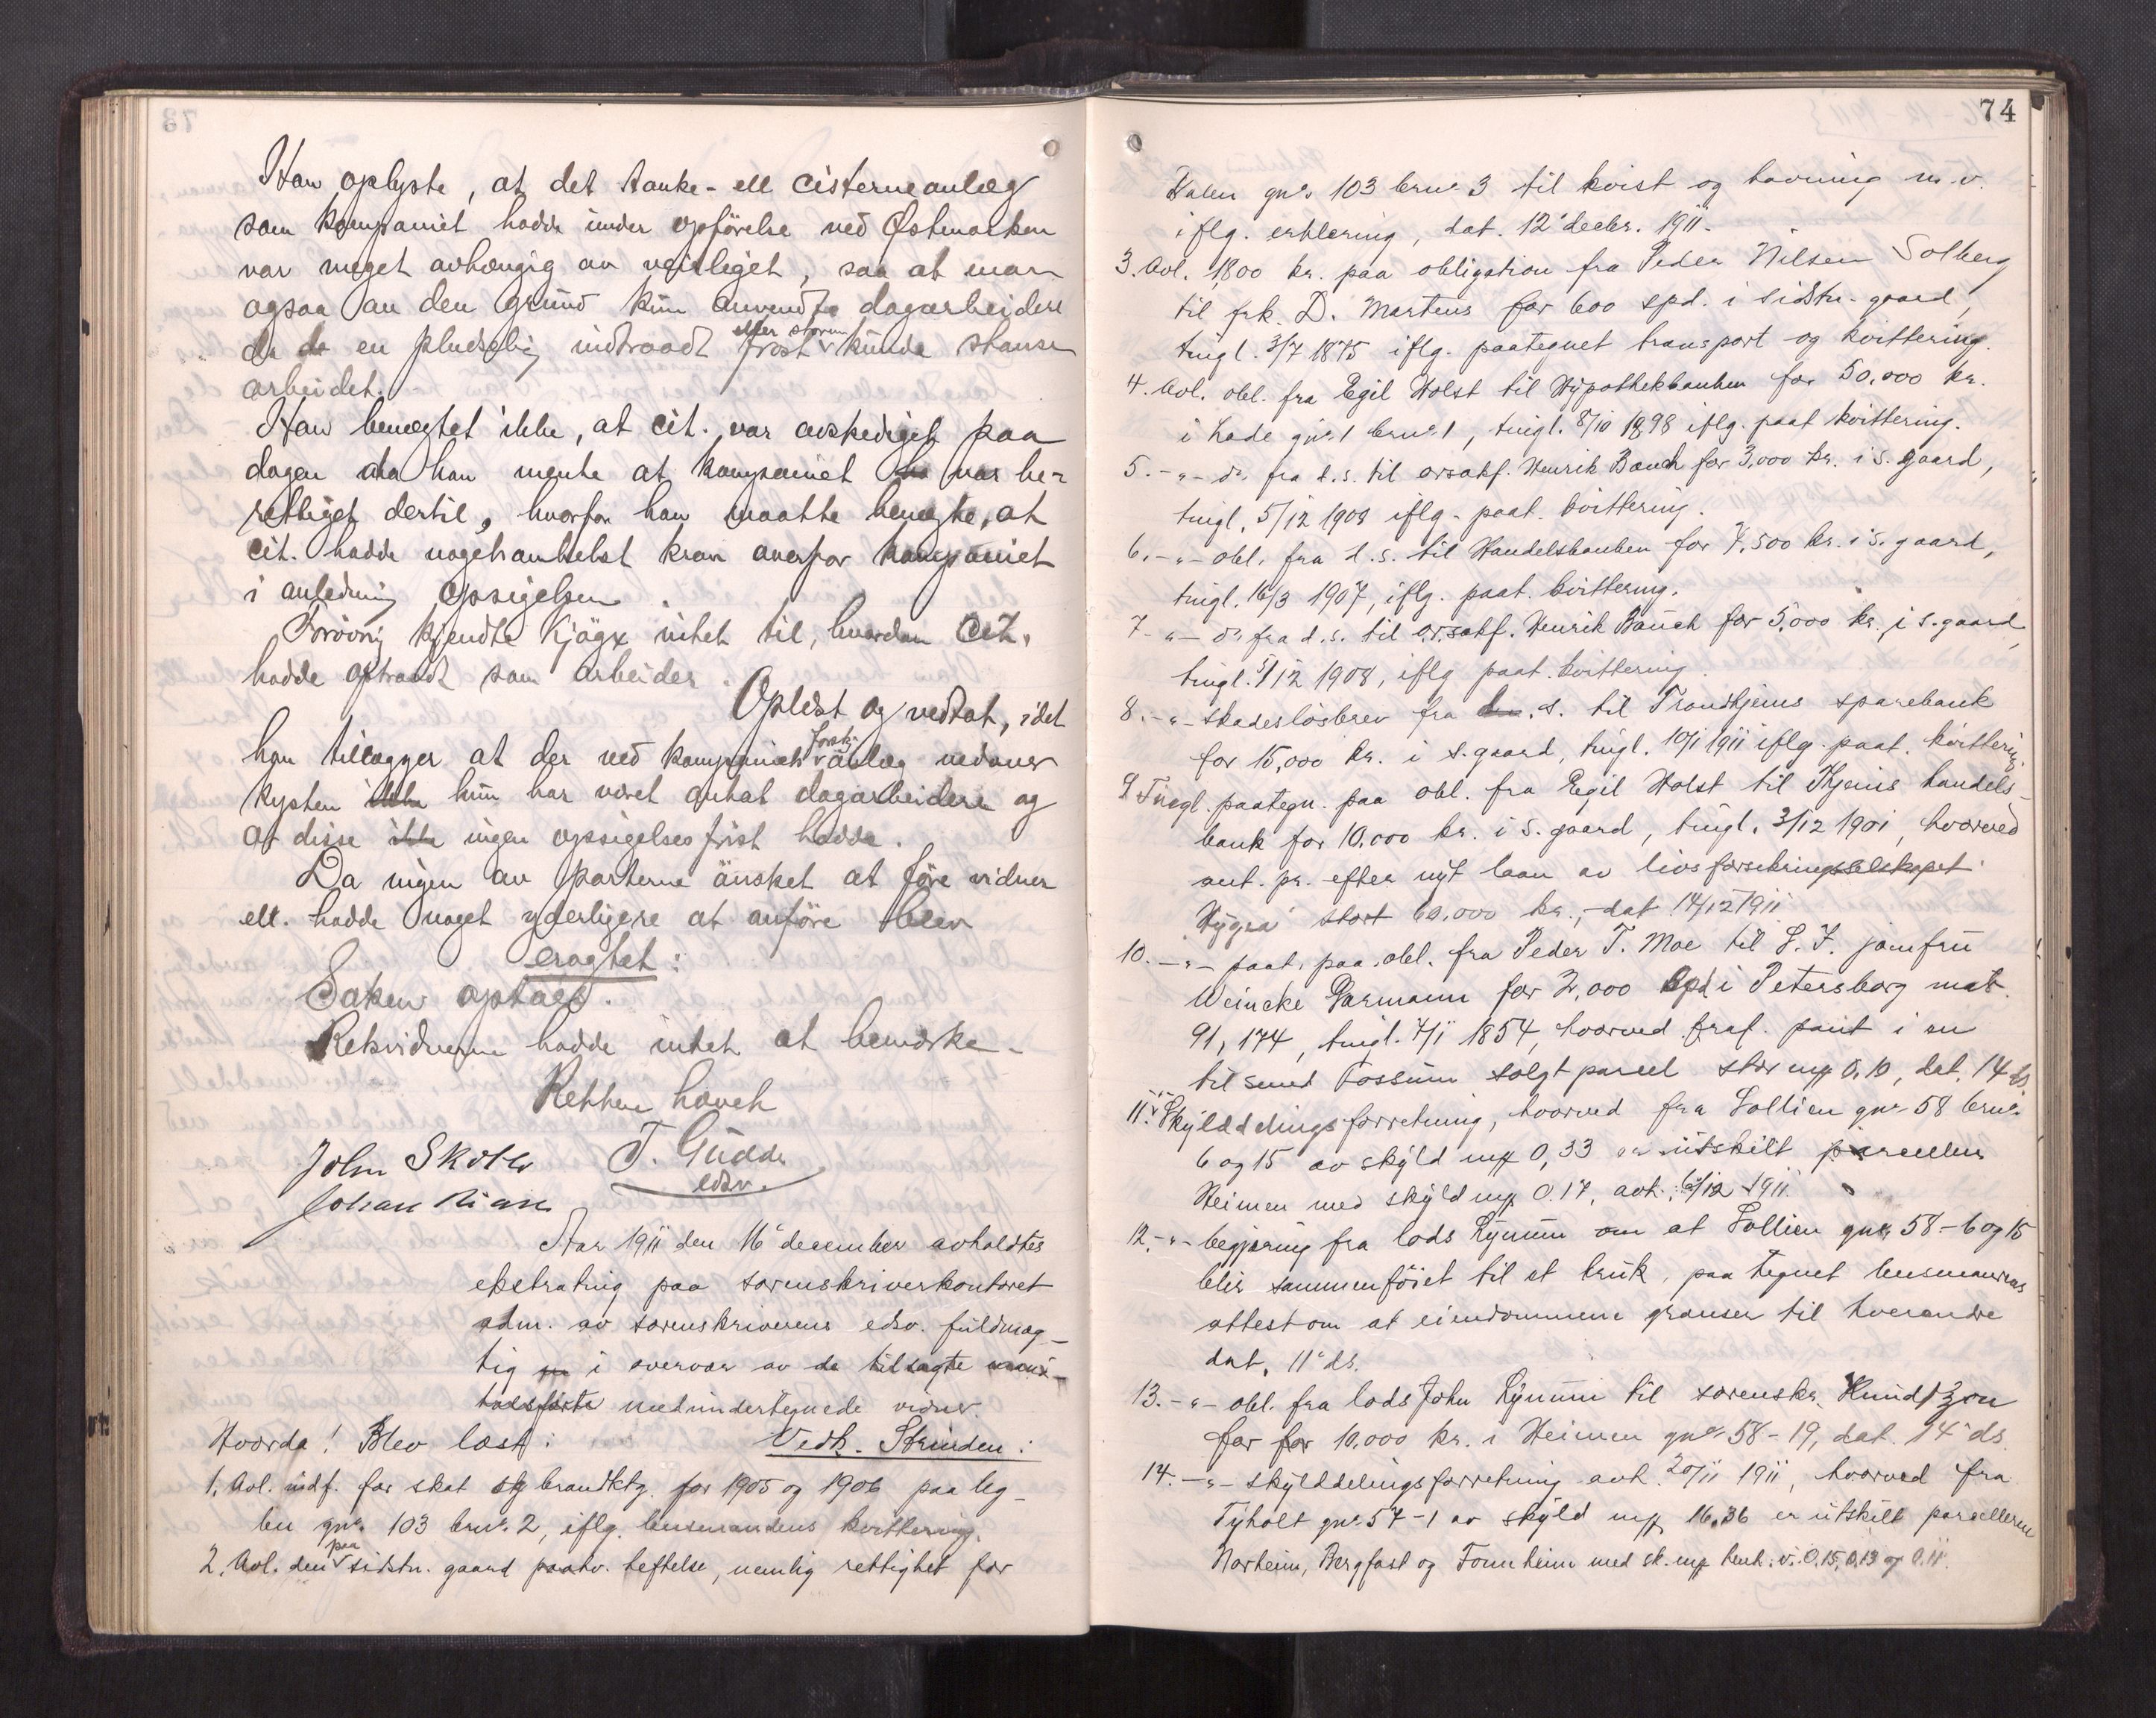 Han oplyste, at det tanke- ell cisterneanlæg
som kompaniet hadde under opførelse ved Østmarken
var meget avhængig av veirliget, saa at man
ogsaa av den grund kun anvendte dagarbeidere
da en pludselig indtraadt frost eller storm kunde stanse
arbeidet.
Han benegtet ikke, at cit. var avskediget paa
dagen da han mente at kompaniet var be-
rettiget dertil, hvorfor han maatte benegte, at
cit. hadde nogetsomhelst krav overfor kompaniet
i anledning opsigelsen.
Forøvrig kjendte Kjøge intet til, hvordan cit.
hadde optraadt som arbeider.
Oplest og vedtat, idet
han tillægger at der ved kompaniets forsk. anlæg nedover
kysten kun har været antat dagarbeidere og
at disse ikke ingen opsigelsesfrist hadde.
Da ingen av parterne ønsket at føre vidner
ell. hadde noget yderligere at anføre blev
eragtet:
Saken optas.
Retsvidnerne hadde intet at bemerke.
Retten hævet
John Skoll T. Gudde
edsv.
Johan Rian
Aar 1911 den 16de december avholdtes
ekstrating paa sorenskriverkontoret
adm. av sorenskriverens edsv. fuldmæg-
tig i overvær av de tilsagte
medundertegnede vidner.
Hvorda! Blev læst: Vedk. Strinden:
1. Avl. indf. for skat og brandktg. for 1905 og 1906 paa Leg-
len gno. 103 brno. 2, iflg. lensmandens kvittering.
2. Avl. den paa sidstn. gaard paahv. heftelse, nemlig rettighet for
74
gno. 103 brno. 3 til kvist og havning m.v.
iflg. erklæring, dat. 12te decbr. 1911.
3. Avl. 1,800 kr. paa obligation fra Peder Nilsen Solberg
til frk. D. Martens for 600 spd. i sidstn. gaard,
tingl. 3/7 1875 iflg. paategnet transport og kvittering.
4. Avl. obl. fra Egil Holst til Hypothekbanken for 50,000 kr.
i Lade gno. 1 brno. 1, tingl. 8/10 1898 iflg. paat kvittering.
5. -"- do. fra d.s. til orsakf. Henrik Bauck for 3,000 kr. i s. gaard,
tingl. 5/12 1908 iflg. paat. kvittering.
6. -"- obl. fra d.s. til Handelsbanken for 7,500 kr. i s. gaard,
tingl. 16/3 1907, iflg. paat. kvittering.
7. -"- do. fra d.s. til o.r.sakf. Henrik Bauck for 5,000 kr. i s. gaard,
tingl. 5/12 1908, iflg paat. kvittering.
8. -"- skadesløsbrev fra d.s. til Trondhjems sparebank
for 15,000 kr. i s. gaard, tingl. 10/1 1911 iflg. paat. kvittering.
9 Tingl. paategn. paa obl. fra Egil Holst til Thjems handels-
bank for 10.000 kr. i s. gaard, tingl. 3/12 1901, hvorved
ant. pr. efter nyt laan av livsforsikringsselskapet
"Hygea" stort 60.000 kr., dat 14/12 1911
10. -"- paat. paa obl. fra Peder T. Moe til L. F. jomfru
Weincke Garmann for 2,000 spd i Petersborg mat.
91, 174, tingl. 7/1 1854, hvorved fraf. pant i en
til smed Fossum solgt parcel stor mk 0.10, dat. 14 ds.
11. -"- Skylddelingsforretning, hvorved fra Lollien gno. 58 brno.
6 og 15 av skyld mk 0,33 er utskilt parcellen
Heimen med skyld mk 0.17, avh. 6/12 1911.
12. -"- begjæring fra lods Lynum om at Lollien gno. 58 - 6 og 15
blir sammenføiet til et bruk, paa tegnet lensmannens
attest om at eiendommene grænser til hverandre
dat. 11te ds.
13. -"- obl. fra lods John Lynum til sorenskr. Knudtzon
for for 10,000 kr. i Heimen gno. 58 - 19, dat. 14de ds.
14. -"- skylddelingsforretning avh. 20/11 1911, hvorved fra
Tyholt gno. 57 - 1 av skyld mk 16,36 er utskilt parcellerne
Norheim, Bergfast og Fornheim med sk. mk henh.v. 0.15, 0.13 og 0.11.